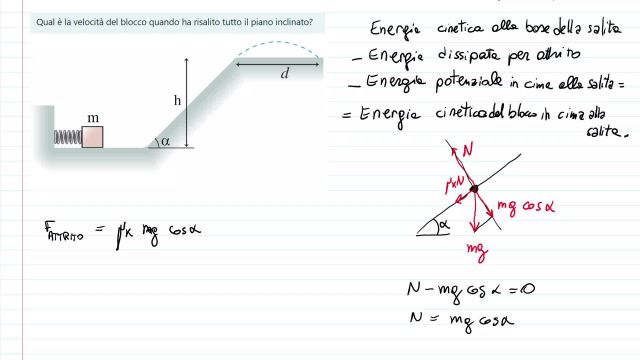 Qual è la velocità del blocco quando ha risalito tutto il piano inclinato?
m
h
α
d
Energia cinetica alla base della salita
– Energia dissipata per attrito
– Energia potenziale in cima alla salita =
= Energia cinetica del blocco in cima alla
salita.
N
μₖN
mg cosα
α
mg
F_ATTRITO = μₖ mg cosα
N – mg cosα = 0
N = mg cosα